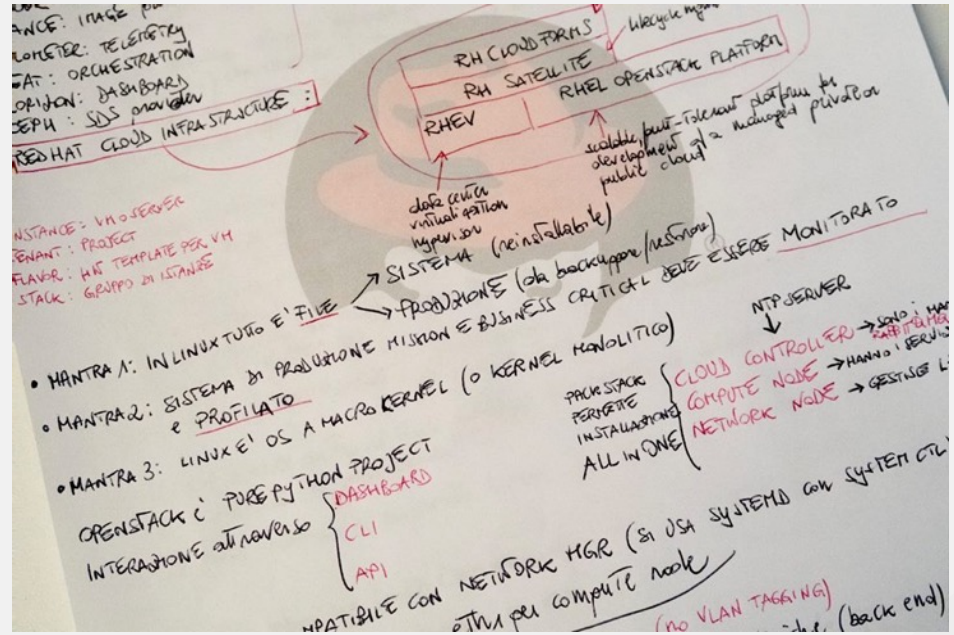 ANCE: IMAGE
LOMETER: TELEMETRY
EAT: ORCHESTRATION
ORIZON: DASHBOARD
CEPH: SDS provider
RED HAT CLOUD INFRASTRUCTURE:
lifecycle mgmt
RH CLOUDFORMS
RH SATELLITE
RHEV
RHEL OPENSTACK PLATFORM
data center
virtualization
hypervisor
scalable, fault-tolerant platform for
development of a managed private or
public cloud
NSTANCE: VM O SERVER
ENANT: PROJECT
FLAVOR: HW TEMPLATE PER VM
STACK: GRUPPO DI ISTANZE
• MANTRA 1: IN LINUX TUTTO E' FILE
SISTEMA (reinstallabile)
PRODUZIONE (da backuppare/restorare)
• MANTRA 2: SISTEMA DI PRODUZIONE MISSION E BUSINESS CRITICAL DEVE ESSERE MONITORATO
e PROFILATO
• MANTRA 3: LINUX E' OS A MACROKERNEL (O KERNEL MONOLITICO)
OPENSTACK è PURE PYTHON PROJECT
INTERAZIONE attraverso
DASHBOARD
CLI
API
PACKSTACK
PERMETTE
INSTALLAZIONE
ALL IN ONE
NTP SERVER
CLOUD CONTROLLER → SONO I
COMPUTE NODE → HANNO I SERVI
NETWORK NODE → GESTISCE L
MPATIBILE CON NETWORK MGR (SI USA SYSTEMD con SYSTEMCTL
per compute node
(no VLAN TAGGING)
(back end)